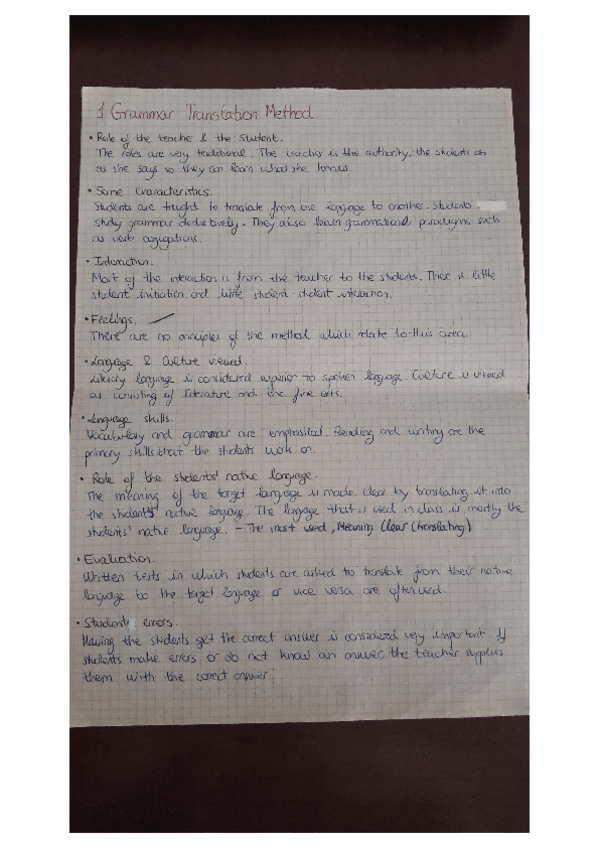 1 Grammar Translation Method.
• Role of the teacher & the student.
The roles are very traditional. The teacher is the authority, the students do
as she says so they can learn what she knows.
• Some characteristics.
Students are taught to translate from one language to another. Students
study grammar deductively. They also learn grammatical paradigms such
as verb conjugations.
• Interaction.
Most of the interaction is from the teacher to the students. There is little
student initiation and little student-student interaction.
• Feelings.
There are no principles of the method which relate to this area
• Language & Culture viewed.
Literary language is considered superior to spoken language. Culture is viewed
as consisting of literature and the fine arts.
• Language skills.
Vocabulary and grammar are emphasized. Reading and writing are the
primary skills that the students work on.
• Role of the students' native language.
The meaning of the target language is made clear by translating it into
the students native language. The language that is used in class is mostly the
students' native language. – The most used, Meaning Clear (translating)
• Evaluation.
Written tests in which students are asked to translate from their native
language to the target language or vice versa are often used.
• Students errors.
Having the students get the correct answer is considered very important. If
students make errors or do not know an answer the teacher supplies
them with the correct answer.